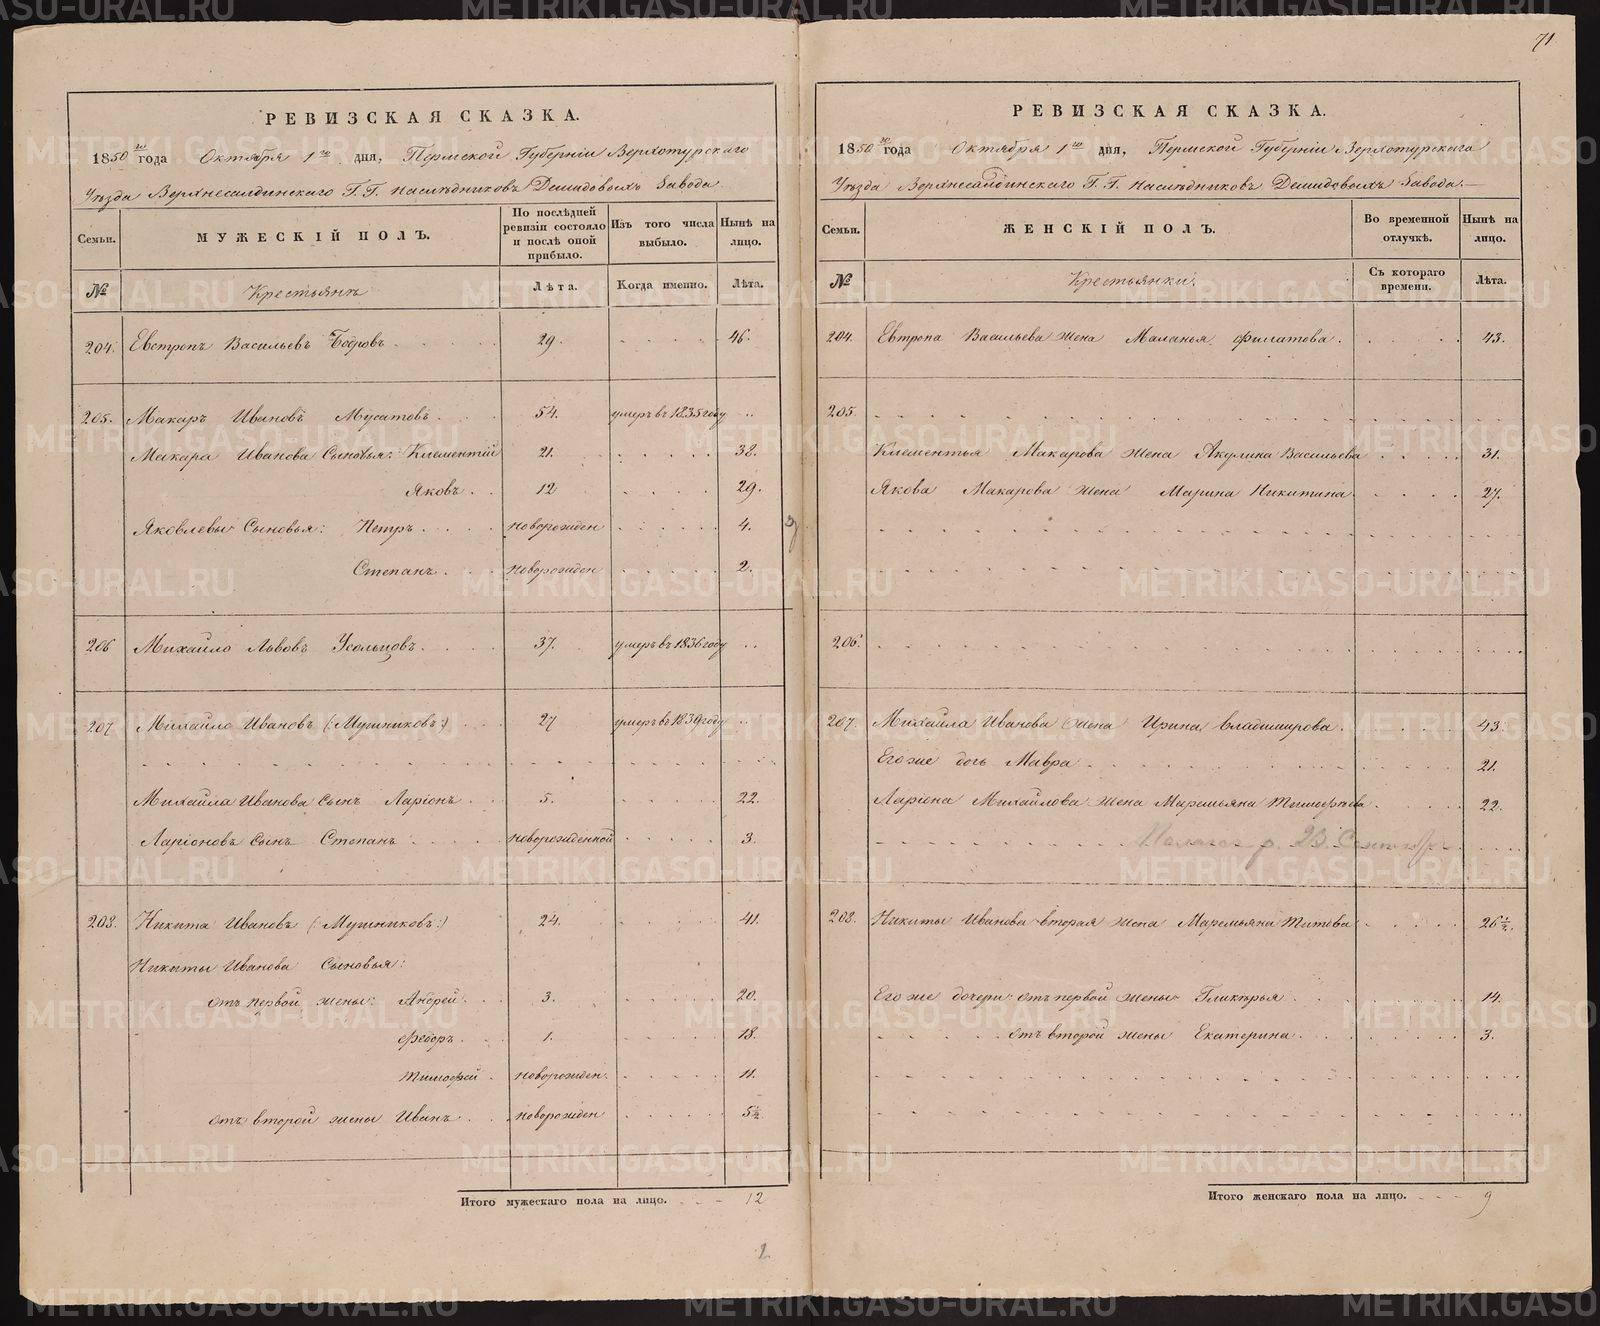 71
РЕВИЗСКАЯ СКАЗКА.
1850го года Октября 1го дня, Пермской Губерніи Верхотурскаго
Уѣзда Верхнесалдинскаго Г.Г. Наслѣдниковъ Демидовыхъ Завода.
Семьи.
МУЖЕСКІЙ ПОЛЪ.
По послѣдней ревизіи состояло и послѣ оной прибыло.
Изъ того числа выбыло.
Нынѣ на лицо.
№ Крестьянъ Лѣта. Когда именно. Лѣта.
204. Евстропъ Васильевъ Бобровъ 29. 46.
205. Макаръ Ивановъ Мусатовъ 54. умеръ въ 1835 году
Макара Иванова Сыновья: Клементій 21. 38.
Яковъ 12 29.
Яковлевы Сыновья: Петръ новорожден 4.
Степанъ новорожден 2.
206 Михайло Львовъ Усольцовъ 37. умеръ въ 1836 году
207 Михайло Ивановъ (:Мушниковъ:) 27 умеръ въ 1839 году
Михайла Иванова сынъ Ларіонъ 5. 22.
Ларіоновъ сынъ Степанъ новорожденной 3.
208. Никита Ивановъ (:Мушниковъ:) 24. 41.
Никиты Иванова Сыновья:
отъ первой жены: Андрей 3. 20.
Федоръ 1. 18.
Тимофей новорожден. 11.
отъ второй жены Иванъ новорожден 5½
Итого мужескаго пола на лицо. 12
2
РЕВИЗСКАЯ СКАЗКА.
1850го года Октября 1го дня, Пермской Губерніи Верхотурскаго
Уѣзда Верхнесалдинскаго Г.Г. Наслѣдниковъ Демидовыхъ Завода.
Семьи.
ЖЕНСКІЙ ПОЛЪ.
Во временной отлучкѣ.
Нынѣ на лицо.
№ Крестьянки. Съ котораго времени. Лѣта.
204. Евтропа Васильева жена Маланья Филатова. 43.
205.
Клементья Макарова жена Акулина Васильева 31.
Якова Макарова жена Марина Никитина 27.
206.
207. Михайла Иванова жена Ирина Владимирова. 43.
Его же дочь Мавра 21.
Ларіона Михайлова жена Маремьяна Тимофѣева 22.
р. 23. Сентябр
208. Никиты Иванова вторая жена Маремьяна Титова 26½.
Его же дочери: отъ первой жены Гликѣрья 14.
отъ второй жены Екатерина. 3.
Итого женскаго пола на лицо. 9
METRIKI.GASO-URAL.RU